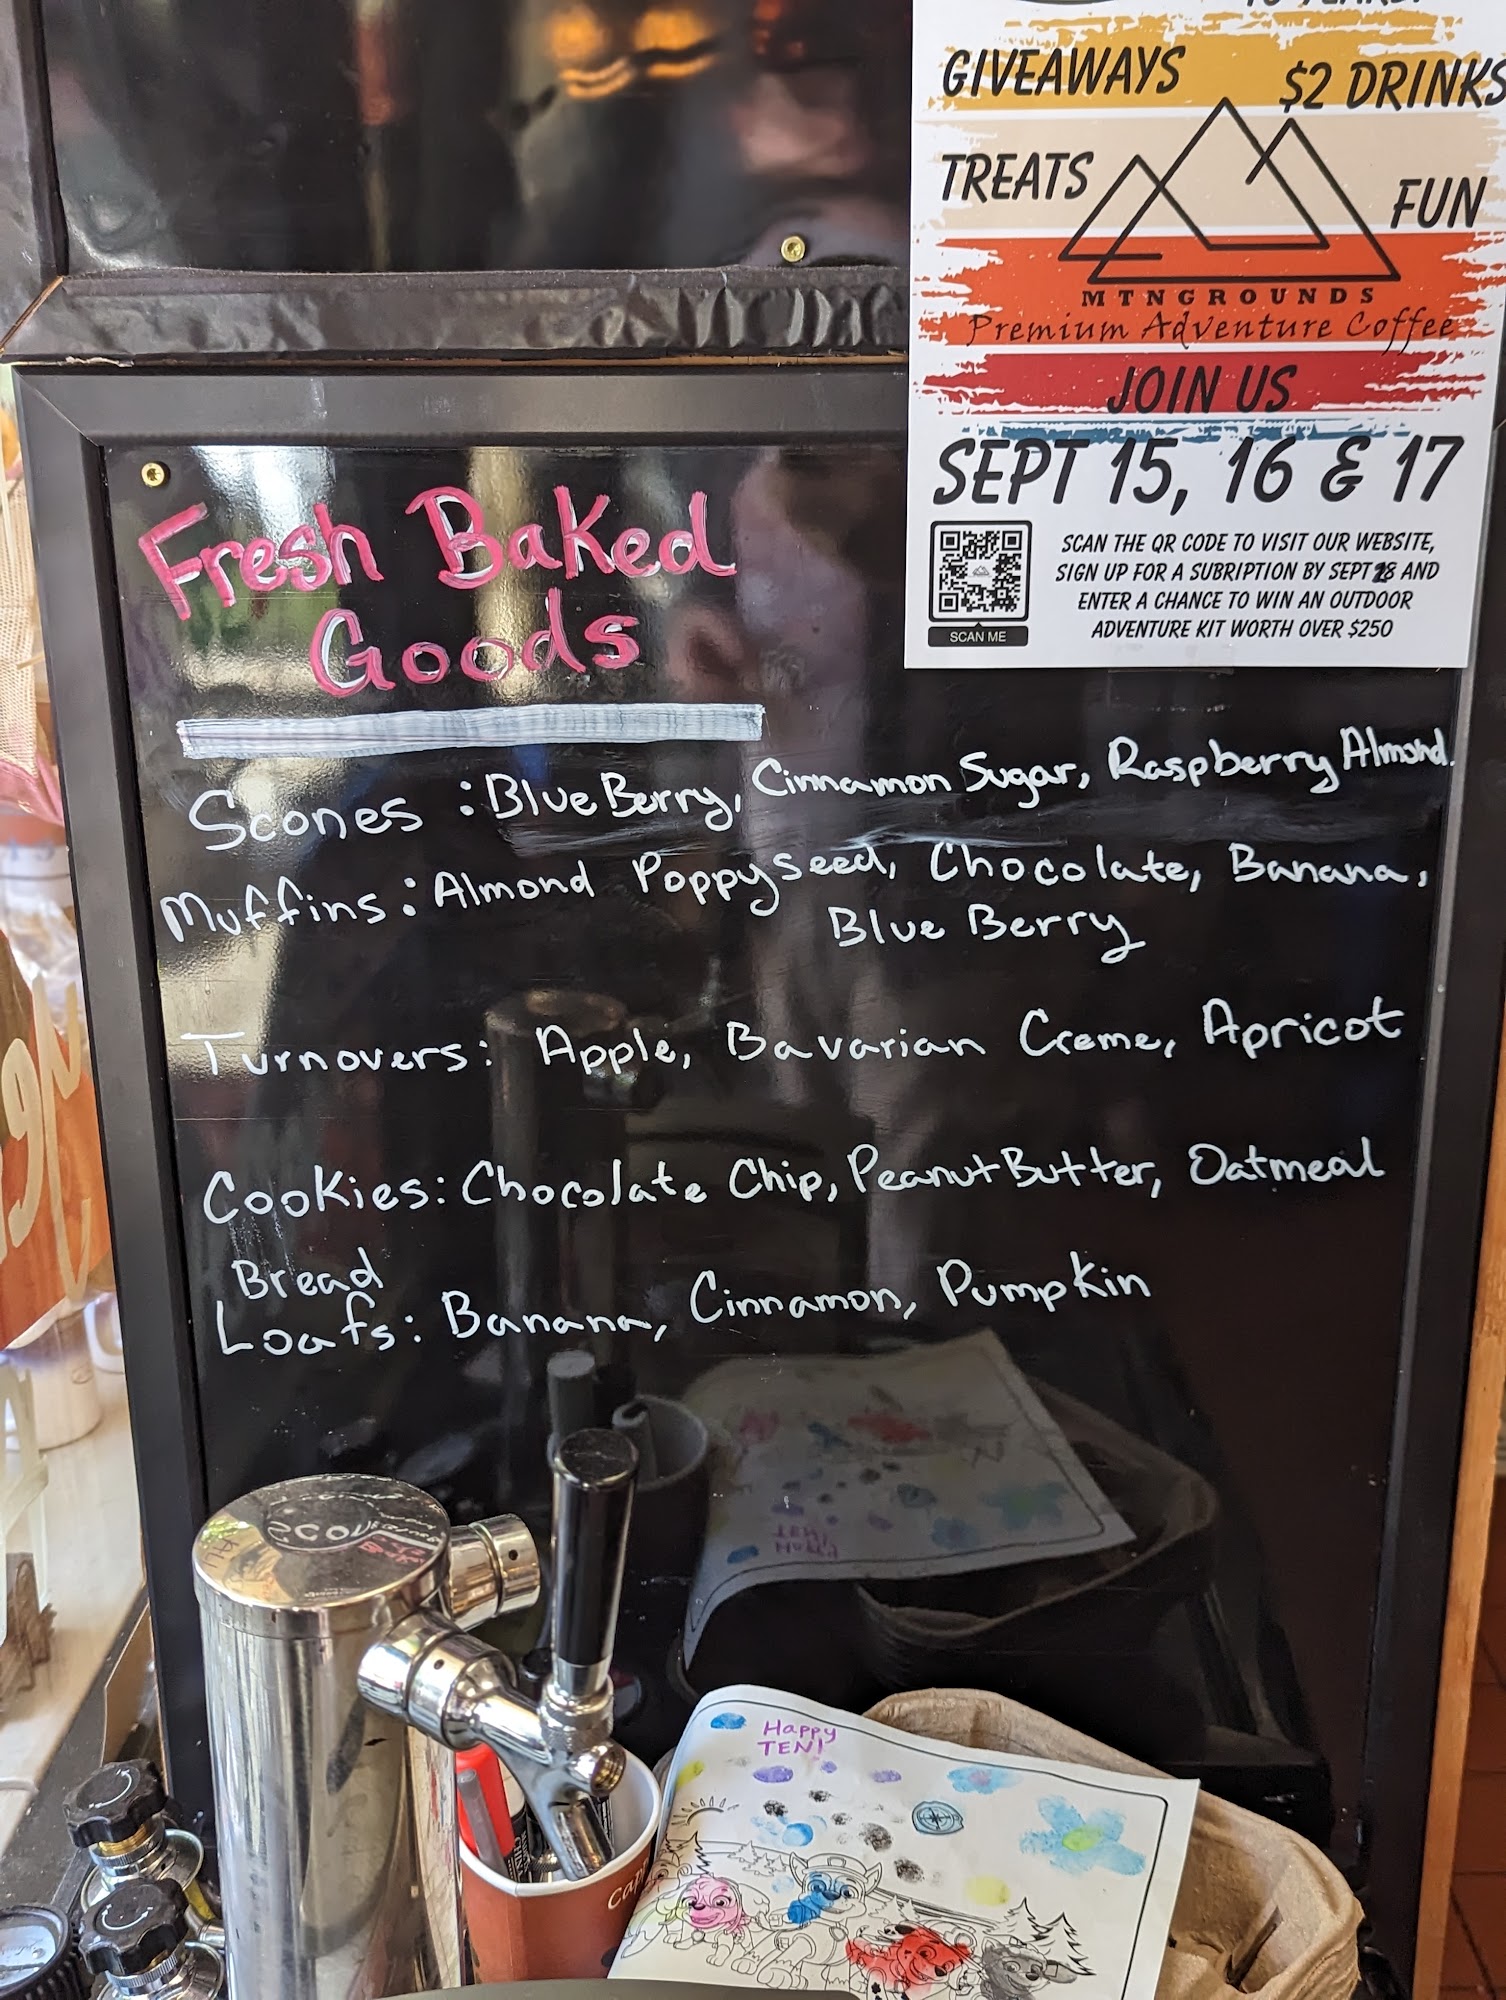 GIVEAWAYS
$2 DRINKS
TREATS
FUN
MTNGROUNDS
Premium Adventure Coffee
JOIN US
SEPT 15, 16 & 17
SCAN THE QR CODE TO VISIT OUR WEBSITE,
SIGN UP FOR A SUBRIPTION BY SEPT 28 AND
ENTER A CHANCE TO WIN AN OUTDOOR
ADVENTURE KIT WORTH OVER $250
SCAN ME
Fresh Baked
Goods
Scones : Blue Berry, Cinnamon Sugar, Raspberry Almond.
Muffins : Almond Poppyseed, Chocolate, Banana,
Blue Berry
Turnovers : Apple, Bavarian Creme, Apricot
Cookies : Chocolate Chip, Peanut Butter, Oatmeal
Bread
Loafs : Banana, Cinnamon, Pumpkin
Happy
TEN!